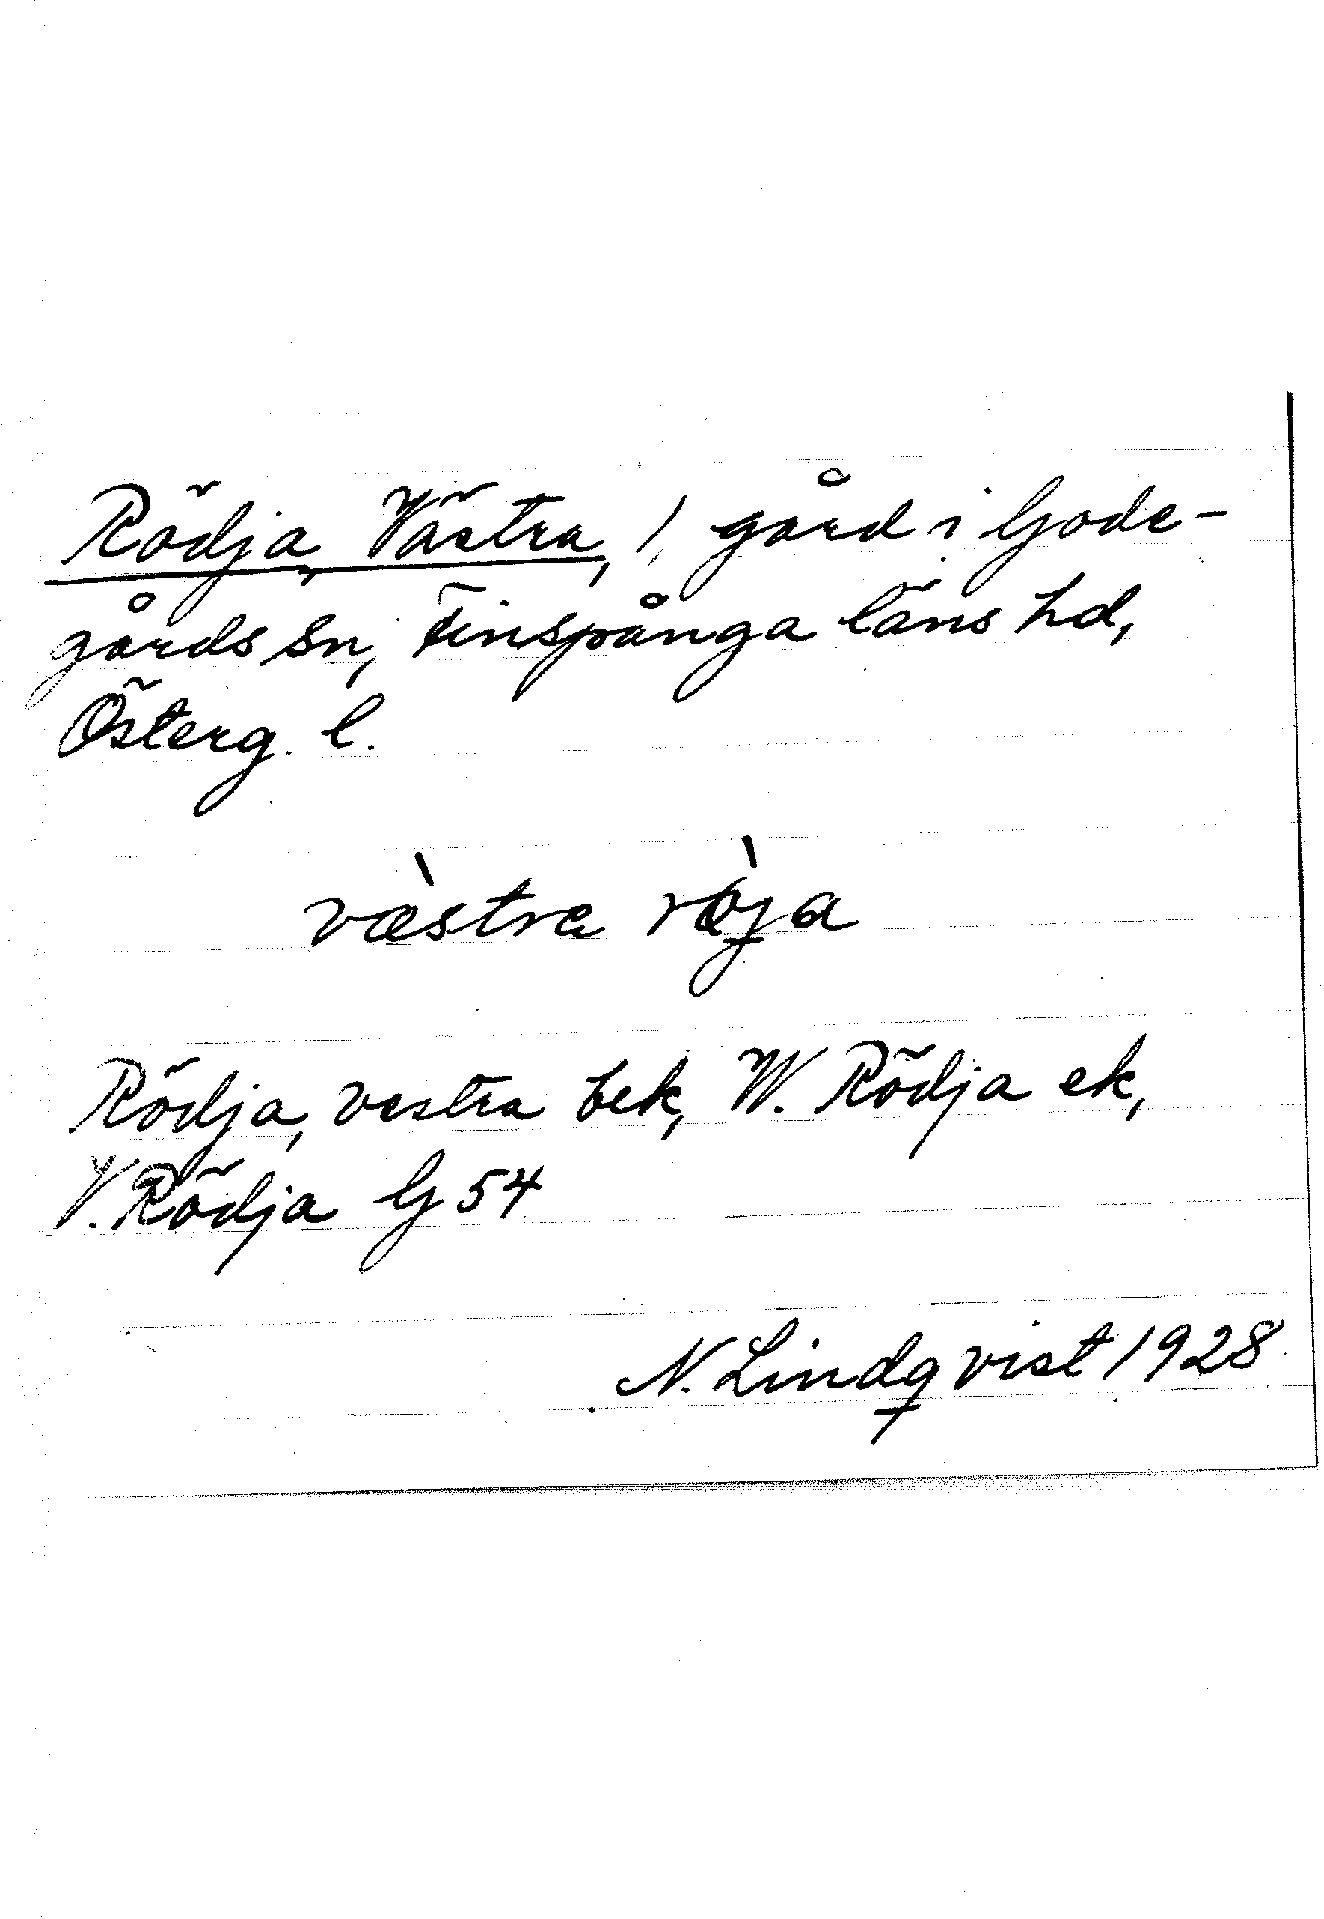 Rödja, Västra, 1, gård i Gode-
gårds sn, Finspånga läns hd,
Österg. l.
væ̀stra rø̀ja
Rödja, vestra bek, W. Rödja ek,
V. Rödja G 54
N. Lindqvist 1928